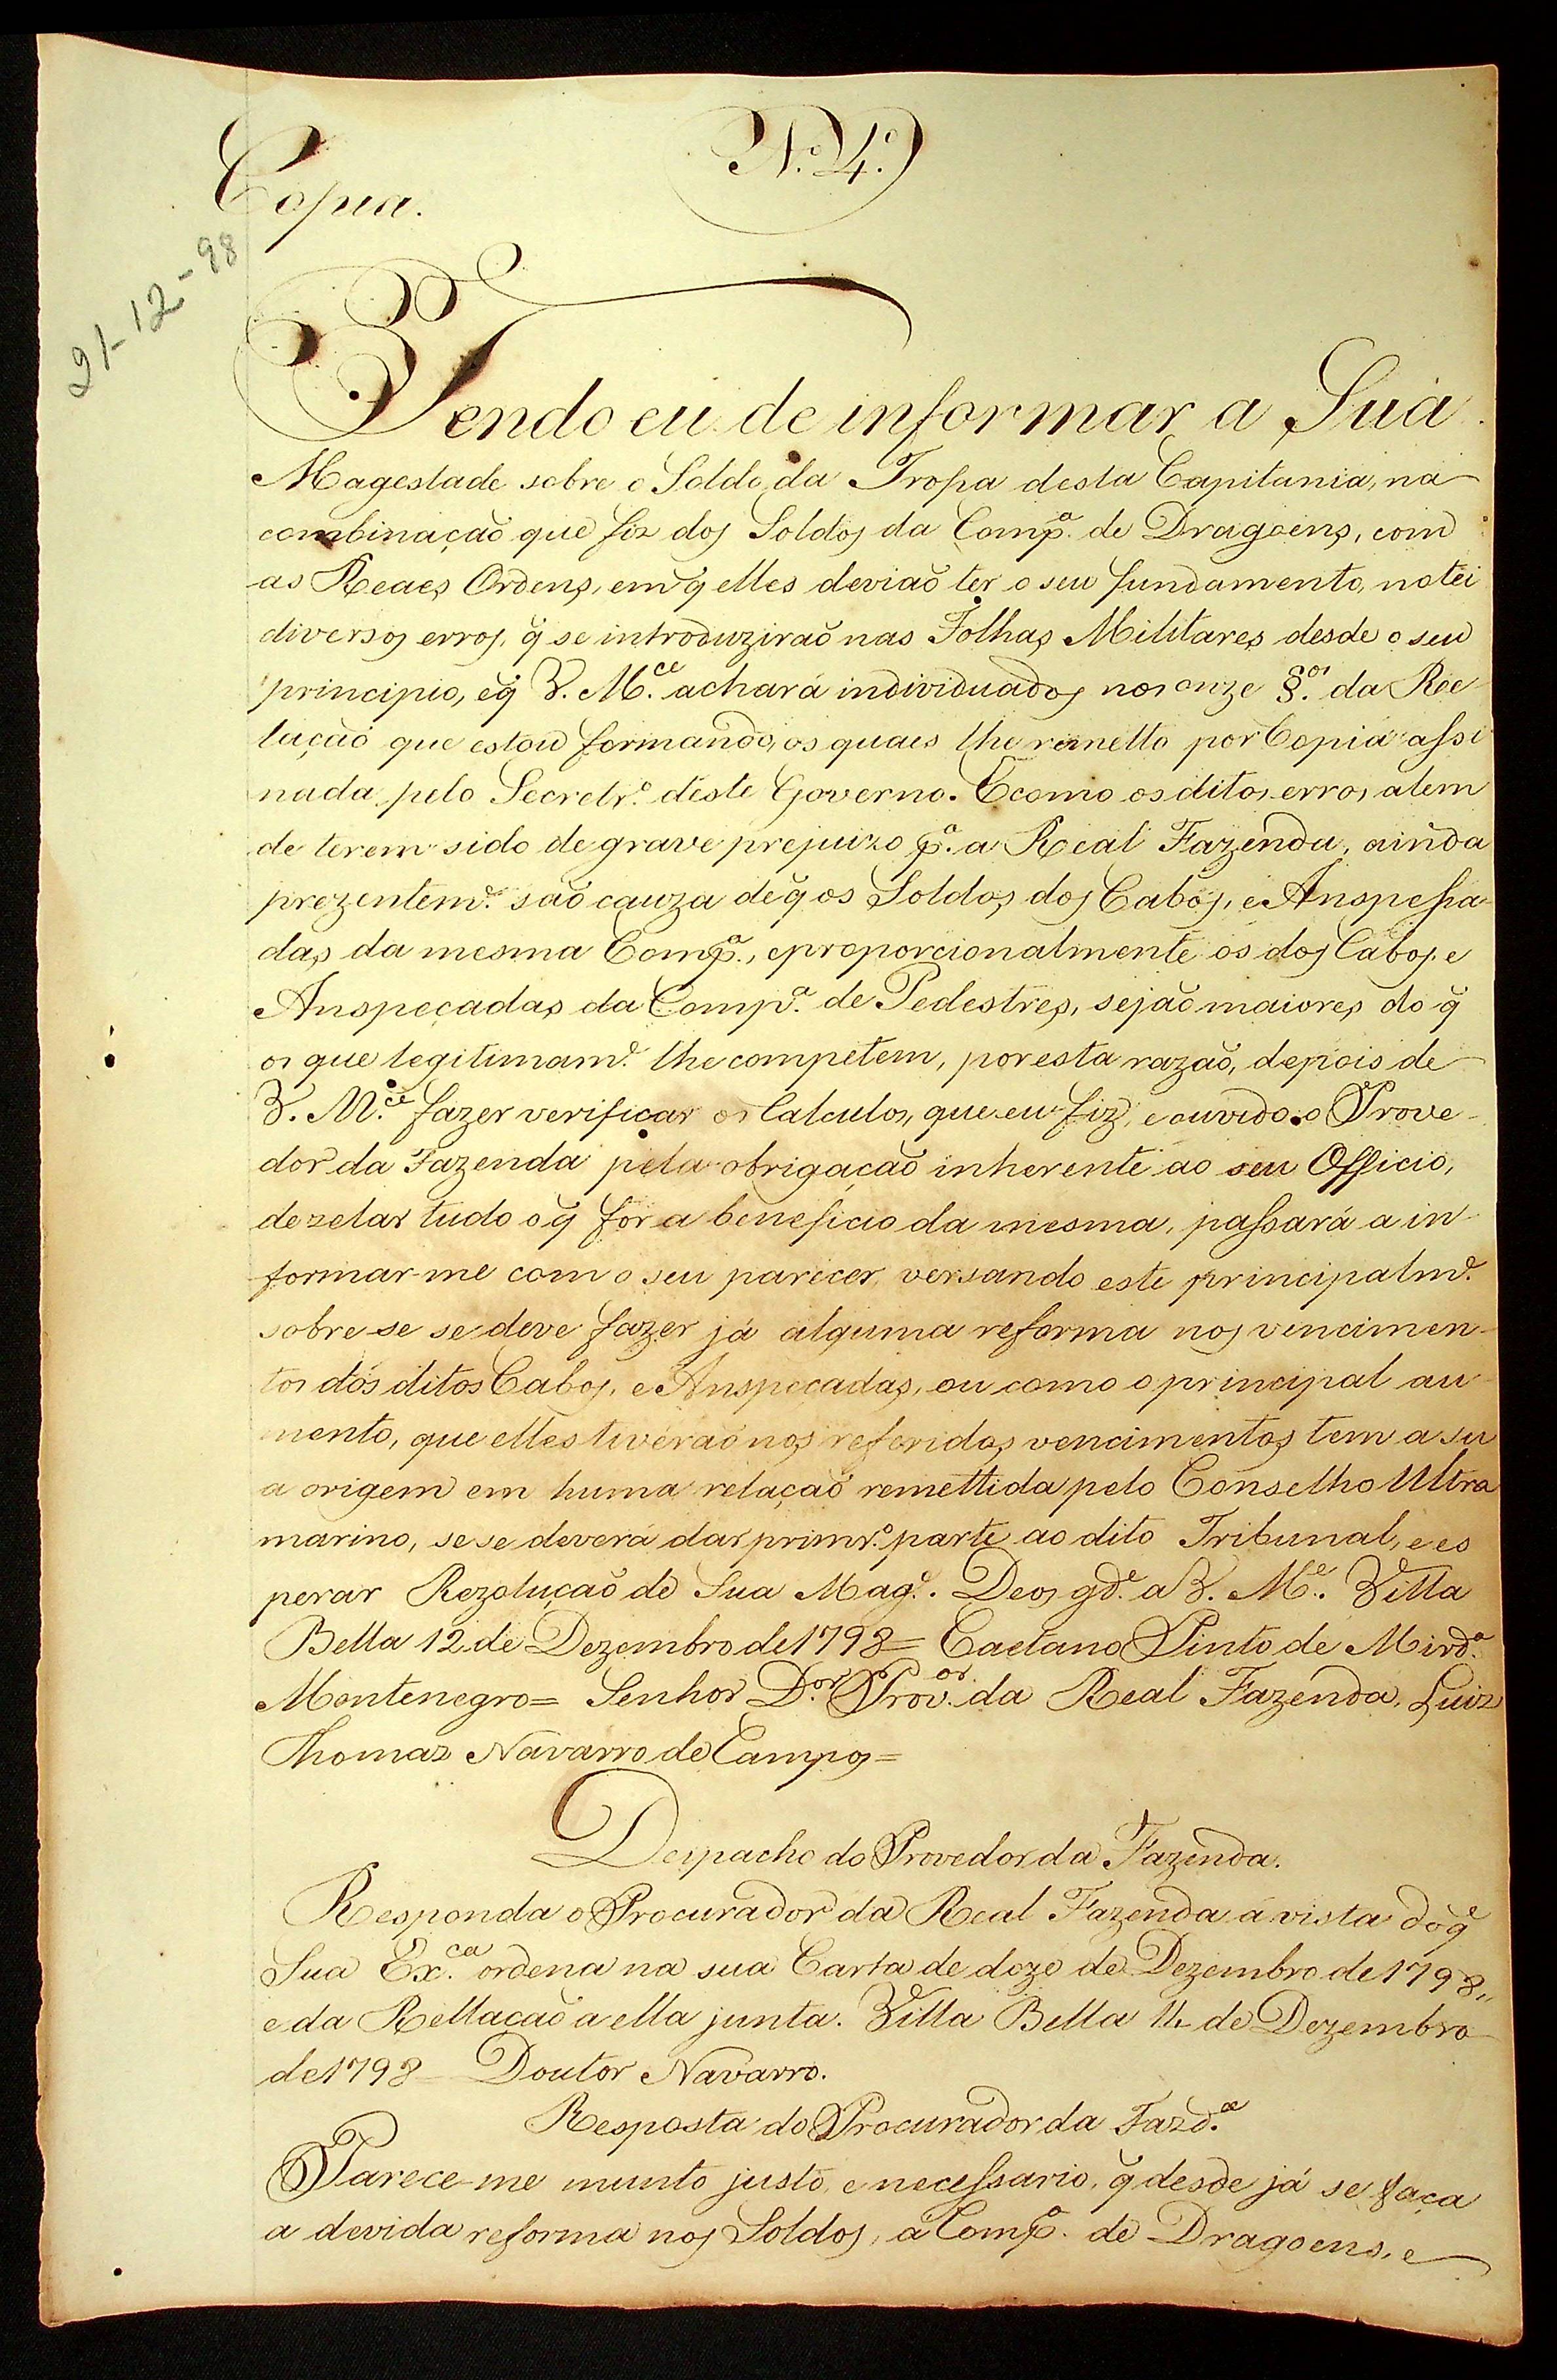 N.º 4.º
Copia.
21-12-98
Tendo eu de informar a Sua
Magestade sobre o Soldo da Tropa desta Capitania, na
combinação que fiz dos Soldos da Comp.ª de Dragoens, com
as Reaes Ordens, em q̃ elles devião ter o seu fundamento, notei
diversos erros, q̃ se introduzirão nas Folhas Militares desde o seu
principio, e q̃ V. M.ce achará individuados nos onze §.os da Re-
lação que estou formando, os quaes lhe remetto por Copia assi
nada pelo Secretr.º deste Governo. E como os ditos erros alem
de terem sido de grave prejuizo p.ª a Real Fazenda, ainda
prezentem.e são cauza de q̃ os Soldos dos Cabos, e Anspessa-
das da mesma Comp.ª, e proporcionalmente os dos Cabos, e
Anspeçadas da Comp.ª de Pedestres, sejão maiores do q̃
os que legitimam.e lhe competem, por esta razão, depois de
V. M.ce fazer verificar os Calculos, que eu fiz, e ouvido o Prove-
dor da Fazenda pela obrigação inherente ao seu Officio,
de zelar tudo o q̃ for a beneficio da mesma, passará a in-
formar-me com o seu parecer, versando este principalm.e
sobre se se deve fazer já alguma reforma nos vencimen-
tos dos ditos Cabos, e Anspeçadas, ou como o principal au-
mento, que elles tiverão nos referidos vencimentos tem a su
a origem em huma relação remettida pelo Conselho Ultra
marino, se se deverá dar primr.º parte ao dito Tribunal, e es
perar Rezolução de Sua Mag.e. Deos gd.e a V. M.e. Villa
Bella 12 de Dezembro de 1798= Caetano Pinto de Mird.ª
Montenegro= Senhor D.or Prov.or da Real Fazenda, Luiz
Thomas Navarro de Campos=
Despacho do Provedor da Fazenda.
Responda o Procurador da Real Fazenda á vista do q̃
Sua Ex.ca ordena na sua Carta de doze de Dezembro de 1798,,
e da Rellação a ella junta. Villa Bella 14 de Dezembro
de 1798 Doutor Navarro.
Resposta do Procurador da Fazd.ª
Parece-me munto justo, e necessario, q̃ desde já se faça
a devida reforma nos Soldos, a Comp.ª de Dragoens, e